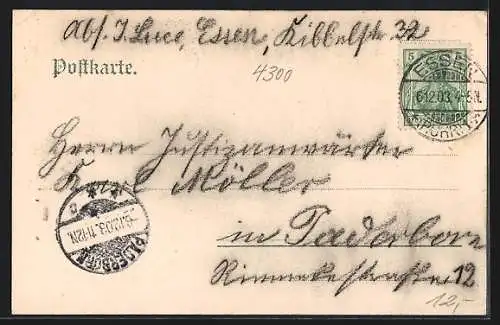 Abs. J. Luce, Essen, Kibbelstr. 32
Postkarte.
4300
5
ESSEN
6.12.03. 4-5.N.
(RUHR)
Herrn Justizanwärter
Karl Möller
in Paderborn
PADERBORN
6.12.03. 11-12.N.
Rinnekestraße 12
12,-